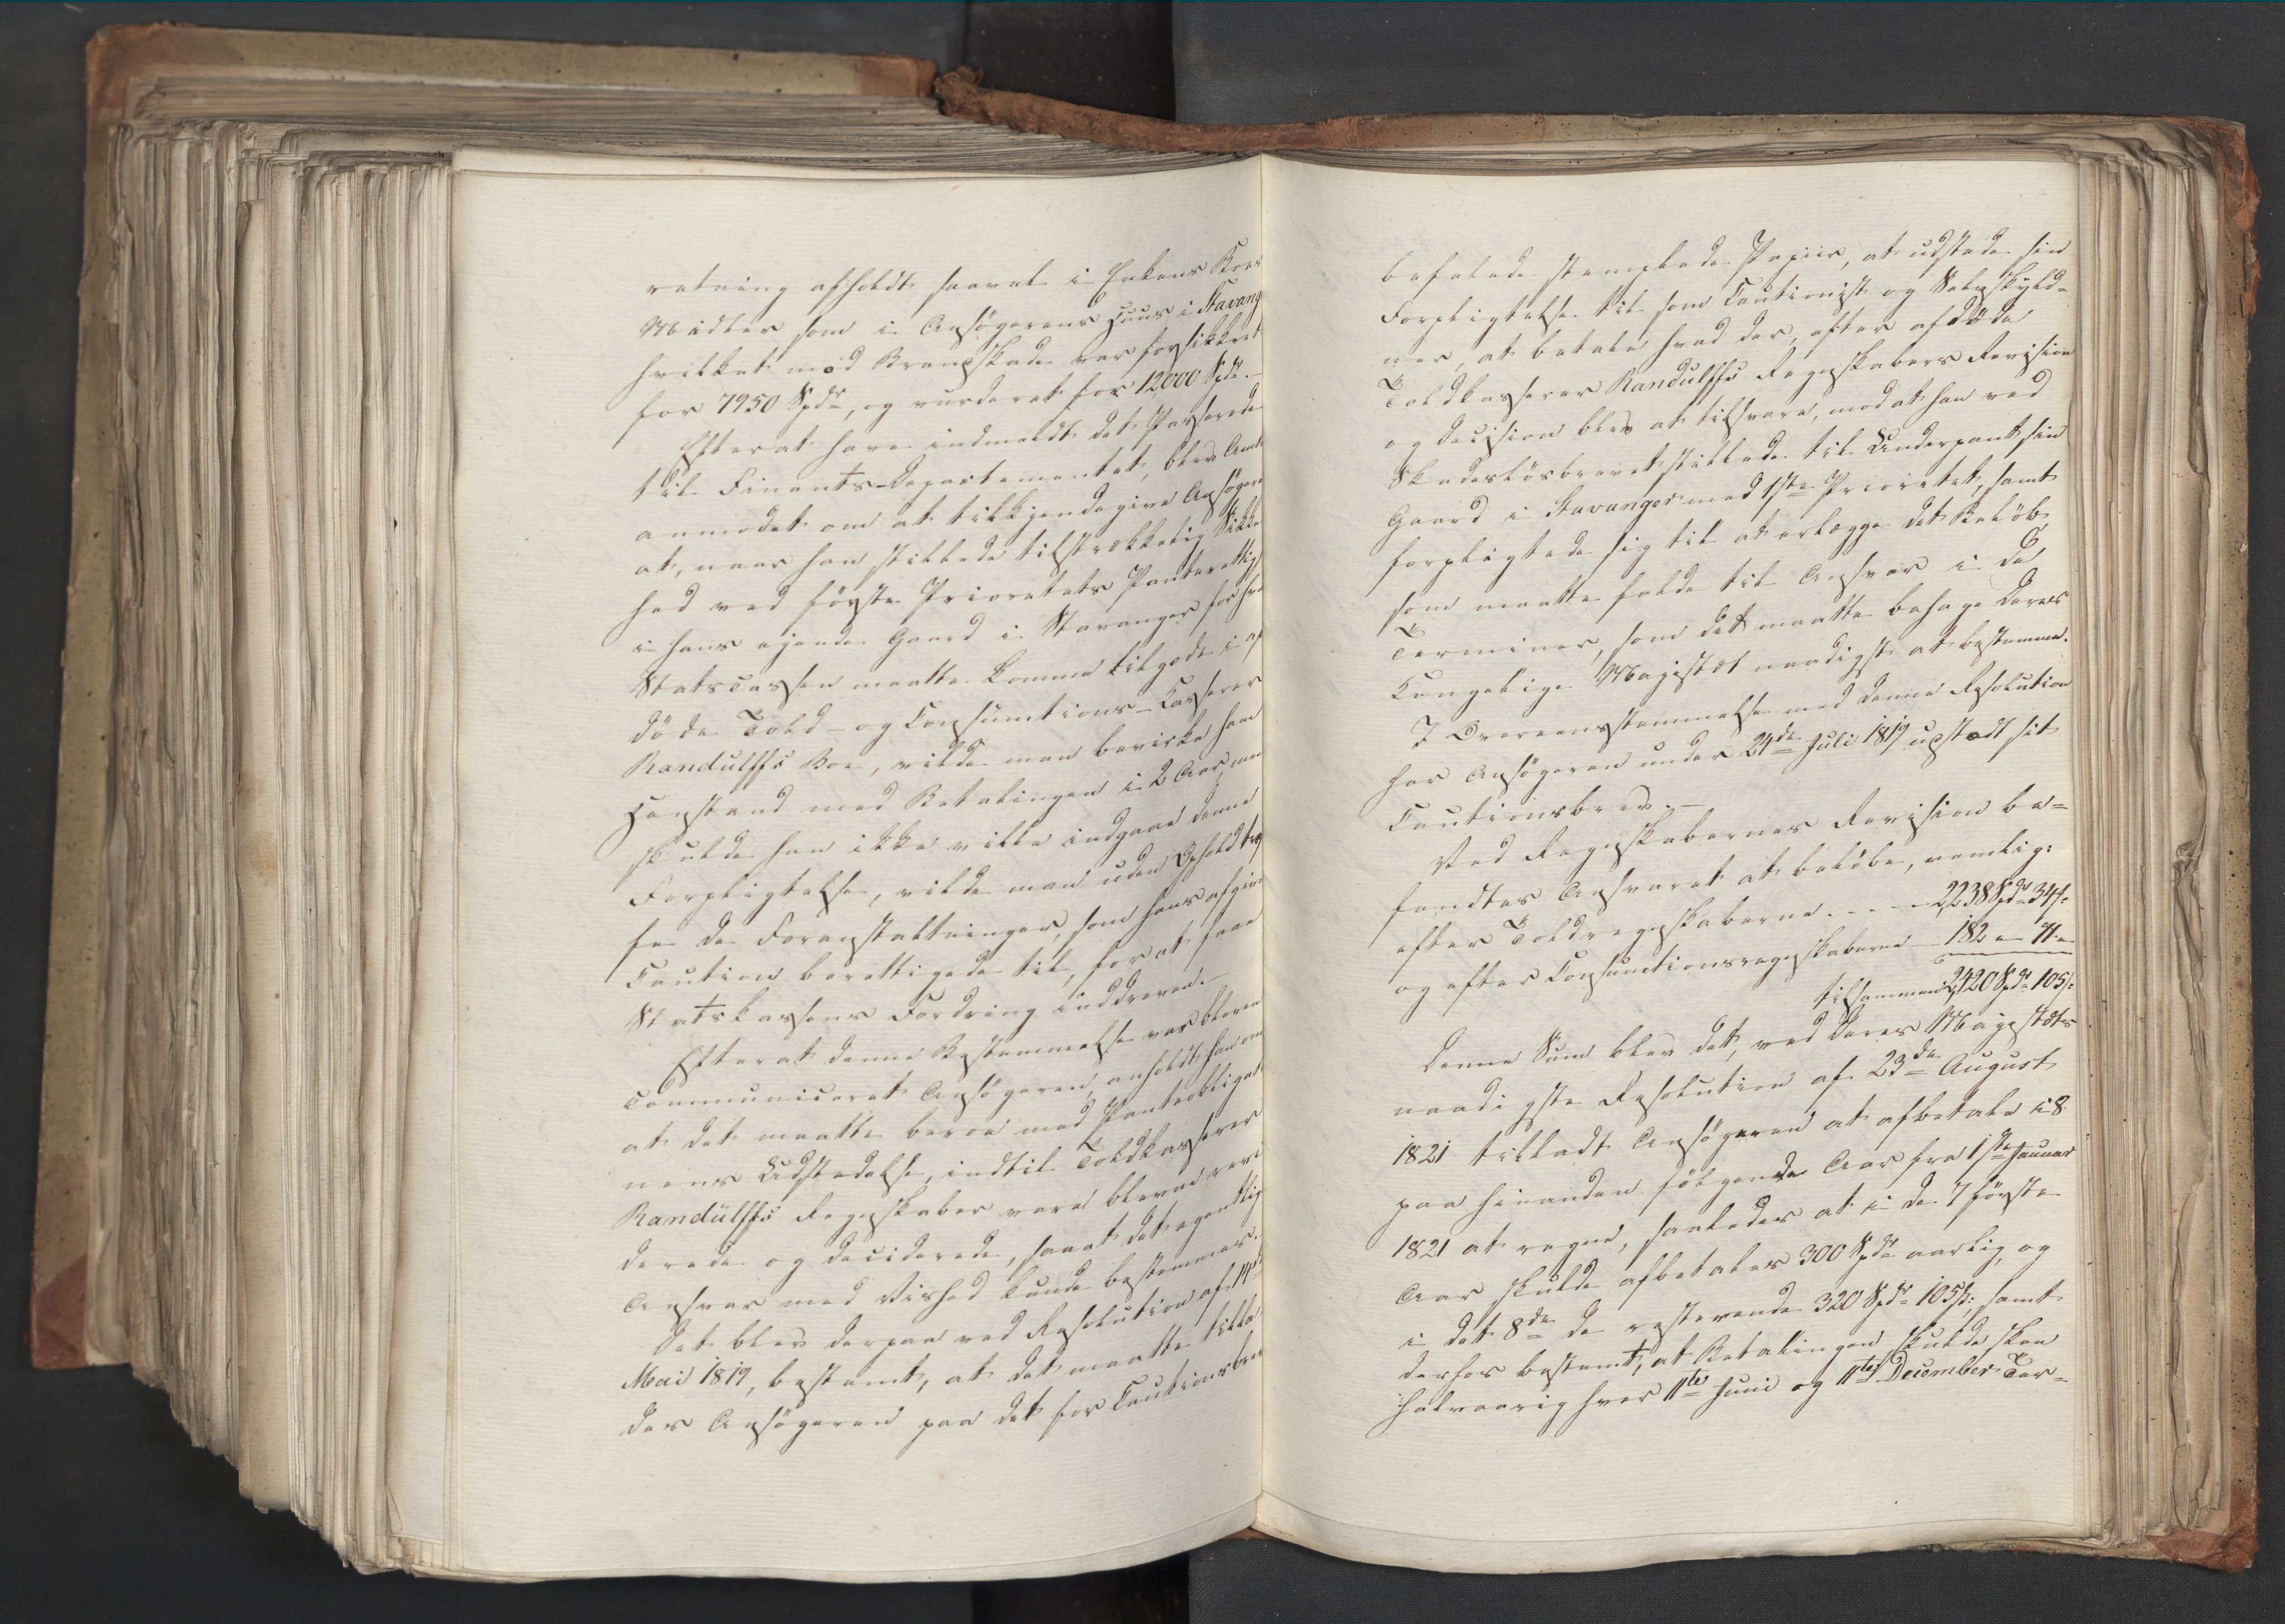 retning afholdt saavel i Enkens Boes
Midler som i Ansøgerens Huus i Stavang
hvilket mod Brandskade var forsikkret
for 7950 Spdr, og vurderet for 12,000 Spdr.
Efterat have indmeldt det Passerede
til Finants-Departementet, blev Amt
anmodet om at tilkjendegive Ansøgere
at, naar han stillede tilstrækkelig Sikker
hed ved første Prioritets Panterettig
i hans eiende Gaard i Stavanger for hva
Statscassen maatte komme tilgode i af
døde Told- og Consumtions-Casserer
Randulffs Boe, vilde man bevirke ham
Henstand med Betalingen i 2 Aar, men
skulde han ikke ville indgaae denne
Forpligtelse, vilde man uden Ophold træf
fe de Foranstaltninger, som hans afgivne
Caution berettigede til, for at faae
Statskassens Fordring inddreven.-
Efterat denne Bestemmelse var bleven
communiceret Ansøgeren, anholdt han om
at det maatte beroe med Panteobligat
nens Udstedelse, indtil Toldkasserer
Randulffs Regnskaber vare blevne revi
derede og deciderede, samt det egentlig
Ansvar med Vished kunde bestemmes.
Det blev derpaa ved Resolution af 14de
Mai 1819, bestemt, at det maatte tilla
des Ansøgeren paa det for Cautionsbreve
befalede stemplede Papiir, at udstede sin
Forpligtelse til som Cautionist og Selvskyld-
ner, at betale hvad der, efter afdøde
Toldkasserer Randulffs Regnskabers Revision
og Decision blev at tilsvare, mod at han ved
Skadesløsbrevet stillede til Underpant sin
Gaard i Stavanger med 1ste Prioritet, samt
forpligtede sig til at erlægge det Beløb,
som maatte falde til Ansvar i de
Terminer, som det maatte behage Deres
Kongelige Majestæt naadigst at bestemme.
I Overeensstemmelse med denne Resolution
har Ansøgeren under 24de Juli 1819 udstædt sit
Cautionsbrev.-
Ved Regnskabernes Revision be=
fandtes Ansvaret at beløbe, nemlig:
efter Toldregnskaberne - - - - 2,238 Spdr 34 ß:
og efter Consumtionsregnskaberne - 182 - 71 -
tilsammen 2,420 Spdr 105 ß:
Denne Sum blev det, ved Deres Majestæts
naadigste Resolution af 23de August
1821 tilladt Ansøgeren at afbetale i 8
paa hinanden følgende Aar fra 1ste Januar
1821 at regne, saaledes at i de 7 første
Aar skulde afbetales 300 Spdr aarlig, og
i det 8de de resterende 320 Spdr 105 ß:, samt
derhos bestemt, at Betalingen skulde skee
halvaarig hver 11te Juni og 11te December Ter=